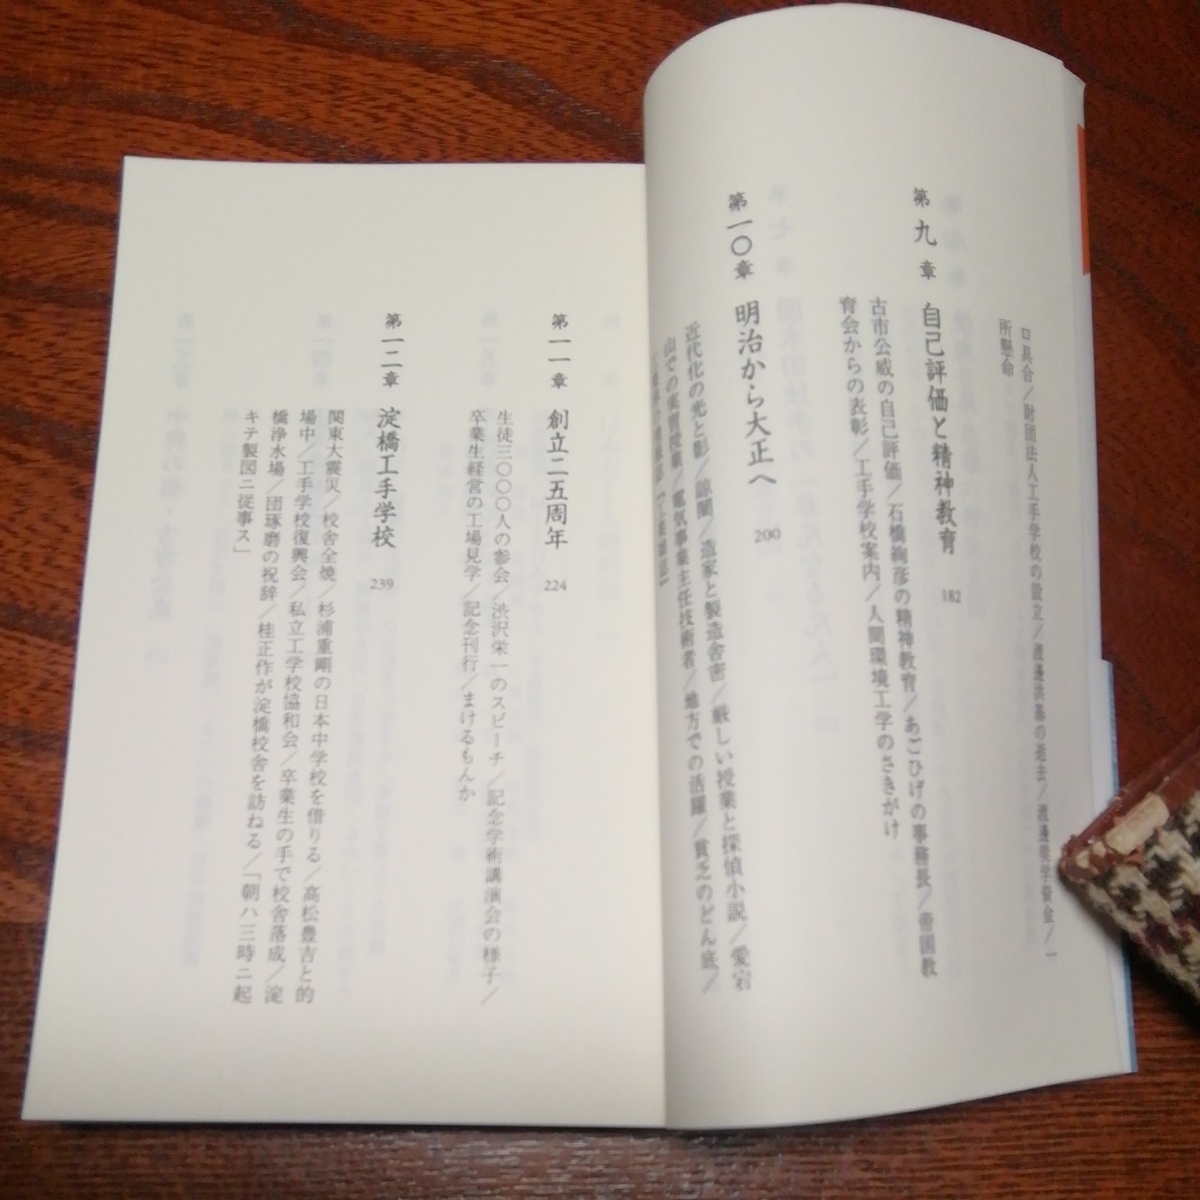 口具合／財団法人工手学校の設立／渡邊洪基の逝去／渡邊奨学資金／一
所懸命
第九章 自己評価と精神教育 182
古市公威の自己評価／石橋絢彦の精神教育／あごひげの事務長／帝国教
育会からの表彰／工手学校案内／人間環境工学のさきがけ
第一〇章 明治から大正へ 200
近代化の光と影／諒闇／造家と製造舎密／厳しい授業と探偵小説／愛宕
山での実習授業／電気事業主任技術者／地方での活躍／貧乏のどん底／
第一一章 創立二五周年 224
生徒三〇〇〇人の参会／渋沢栄一のスピーチ／記念学術講演会の様子／
卒業生経営の工場見学／記念刊行／まけるもんか
第一二章 淀橋工手学校 239
関東大震災／校舎全焼／杉浦重剛の日本中学校を借りる／高松豊吉と的
場中／工手学校復興会／私立工学校協和会／卒業生の手で校舎落成／淀
橋浄水場／団琢磨の祝辞／桂正作が淀橋校舎を訪ねる／「朝ハ三時ニ起
キテ製図ニ従事ス」